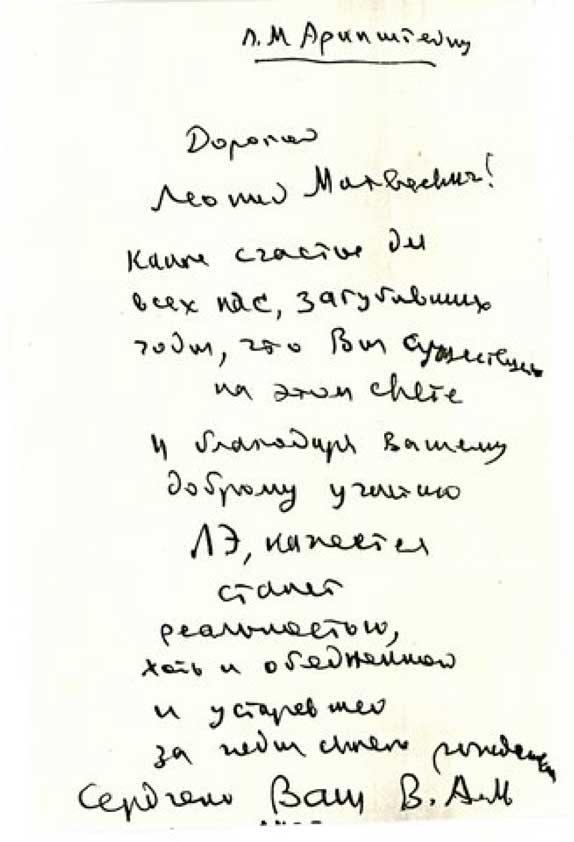 Л.М Аринштейну
Дорогой
Леонид Матвеевич!
Какое счастье для
всех нас, загубивших
годы, что Вы существуете
на этом свете
и благодаря Вашему
доброму участию
ЛЭ, кажется
станет
реальностью,
хоть и обедненной
и устаревшей
за годы своего рождения
Сердечно Ваш В. А.М